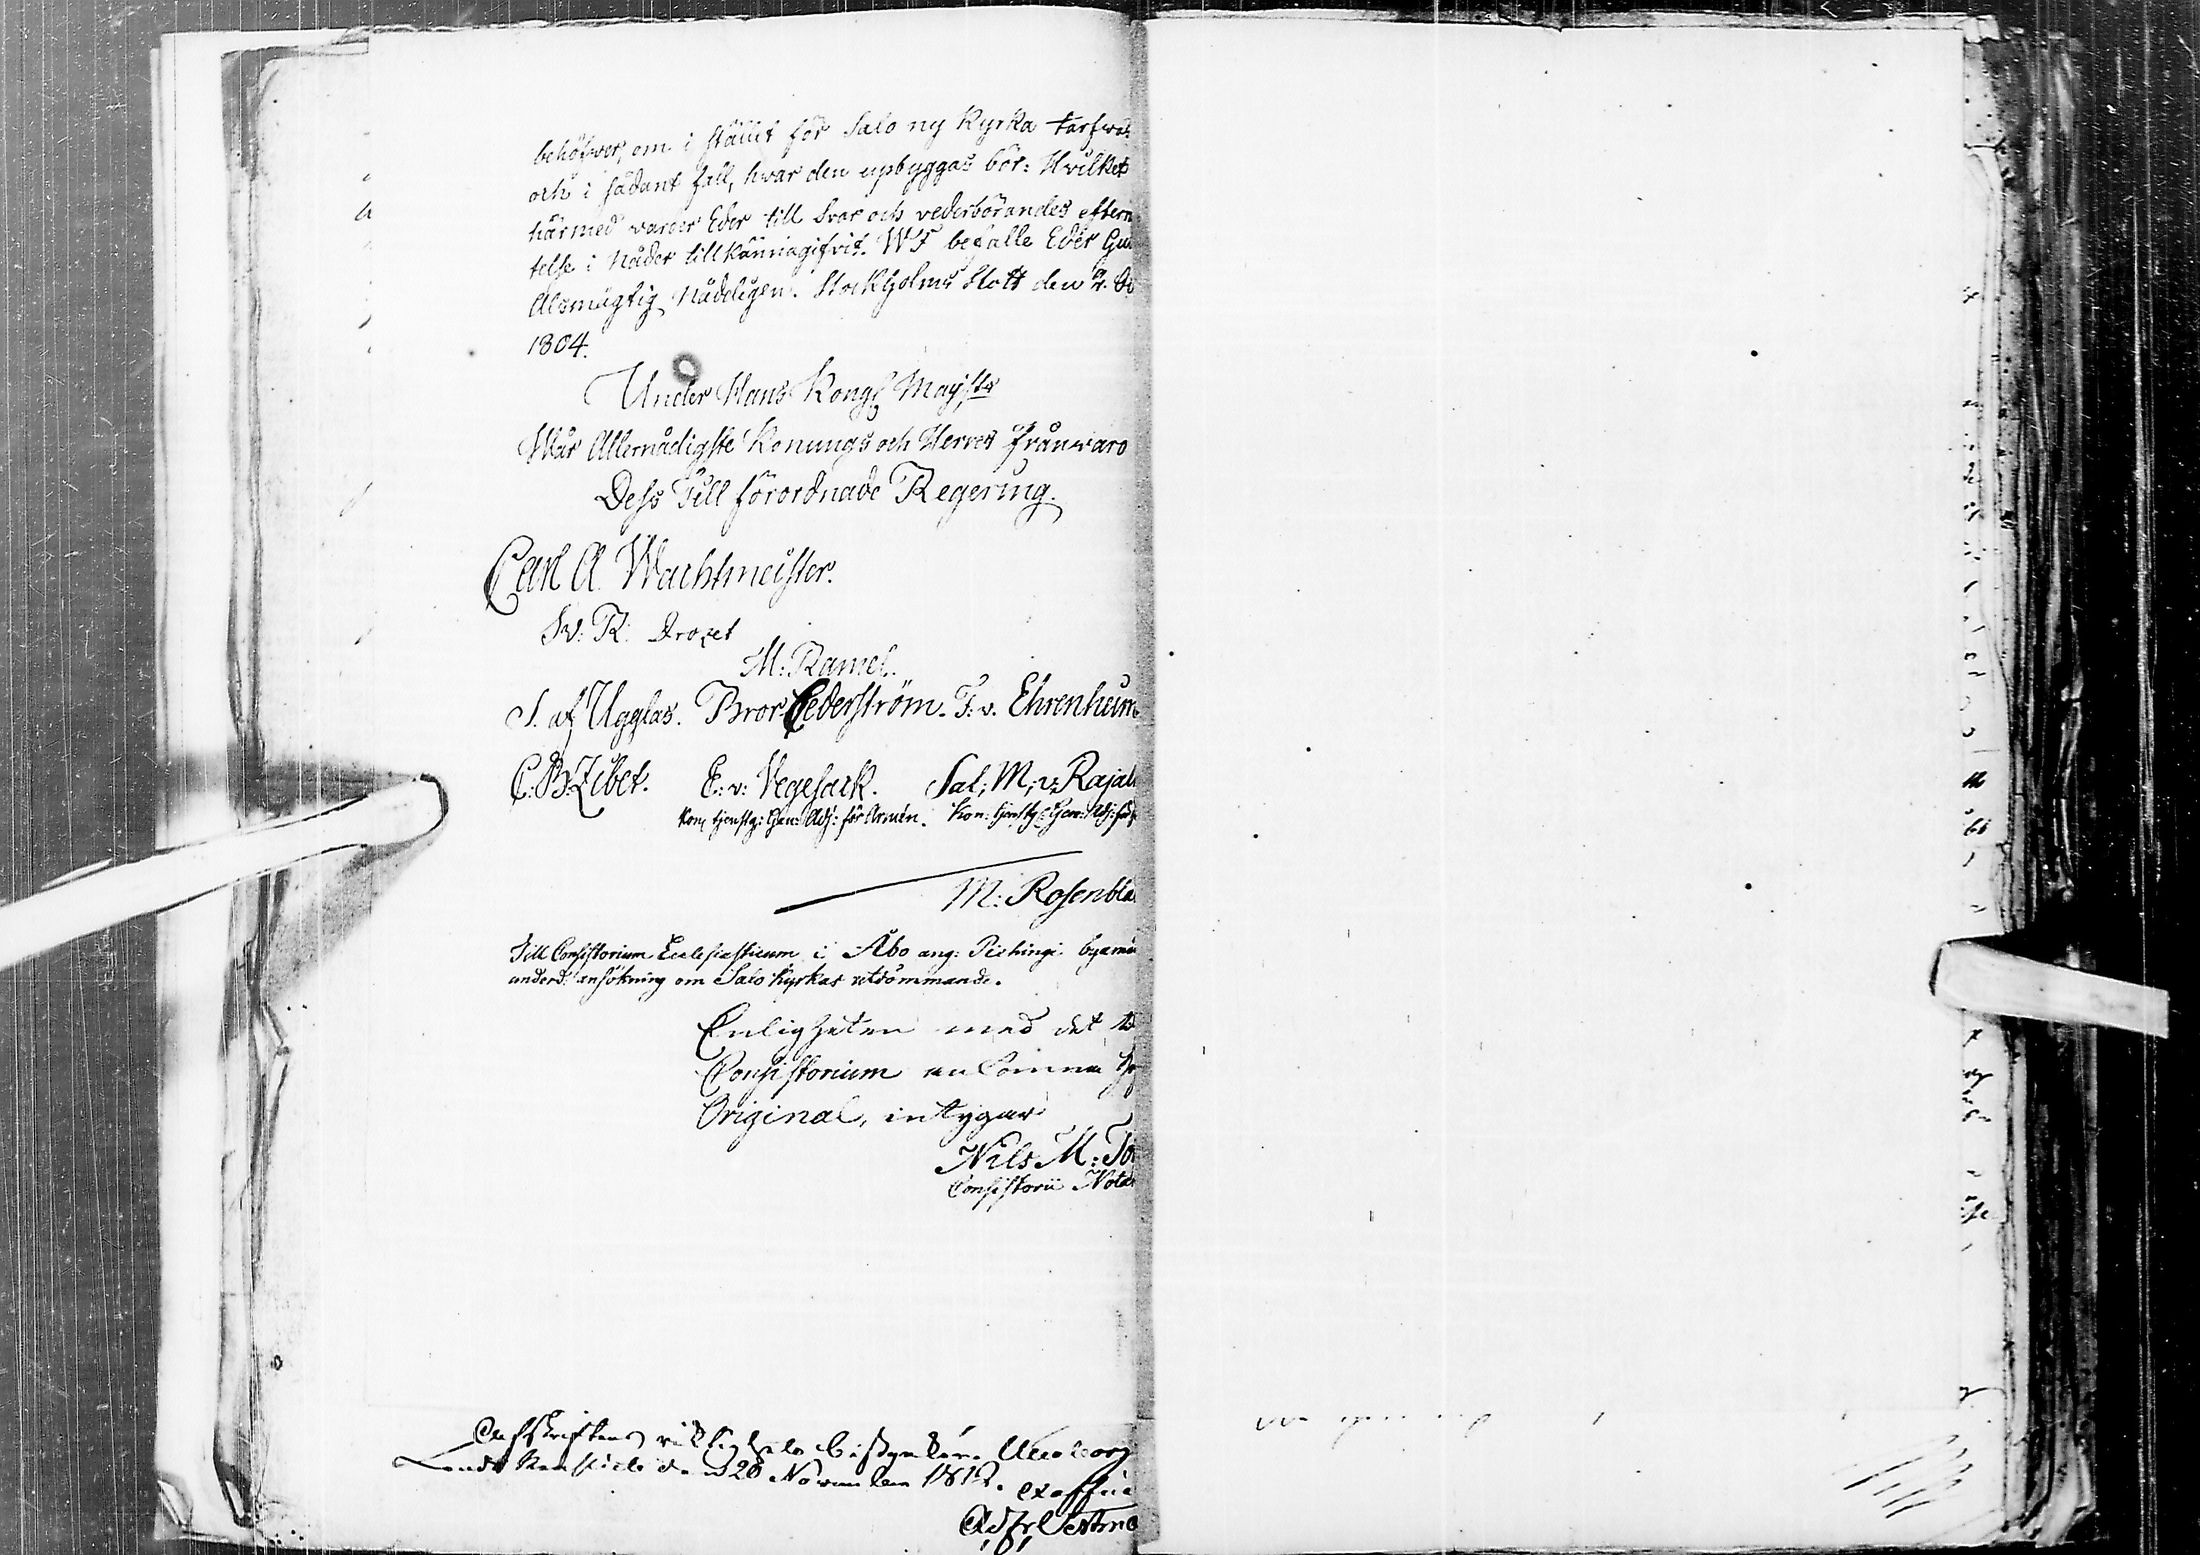 behöfver, om i stället för Salo ny Kyrka tarfvas
och i sådant fall, hvar den upbyggas bör: Hvilket
härmed warder Eder till Svar och vederbörandes eftern
telse i Nåder tillkännagifvit. WJ befalle Eder Gud
Alsmägtig Nådeligen. Stockholms Slott den
1804.
Under Hans Kongl Mayjsts
Wår Allernådigste Konungs och Herres frånvaro
Dess Till förordnade Regering.
Carl A Wachtmeister.
Sv: R: Drozet
M: Ramel.
S. af Ugglas. Bror Cederström. F: v. Ehrenheim
C: B: Zibet. E: v: Vegesack. Sal: M: v: Rajal
Kom tjenstg: Gen: Adj: för Armén. Kom: tjenstg: Gen: Adj: för
M: Rosenbla
Till Consistorium Ecclesiasticum i Åbo ang: Piehingi byamä
underd: ansökning om Salo Kyrkas utdömmande.
Enligheten med det til
Consistorium ankomne
Original, intygar
Nils M: To
Consistorii Nota
Afskriftens riktighet bestyrker. Uleåborg
Lands Kansliet den 20 November 1812. ex officio